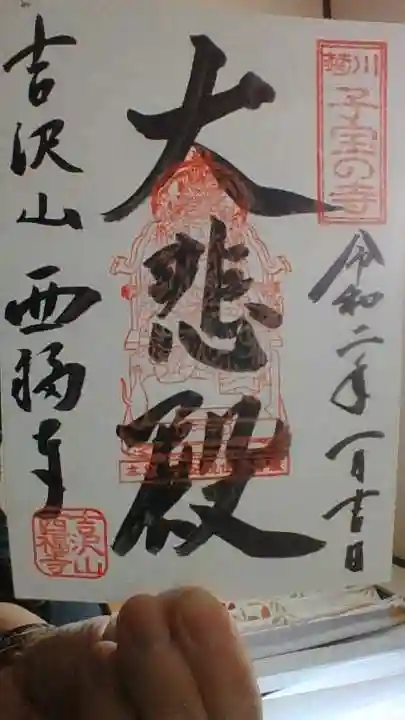 子宝の寺
令和二年一月吉日
大悲殿
吉沢山
西福寺
吉沢山
西福寺